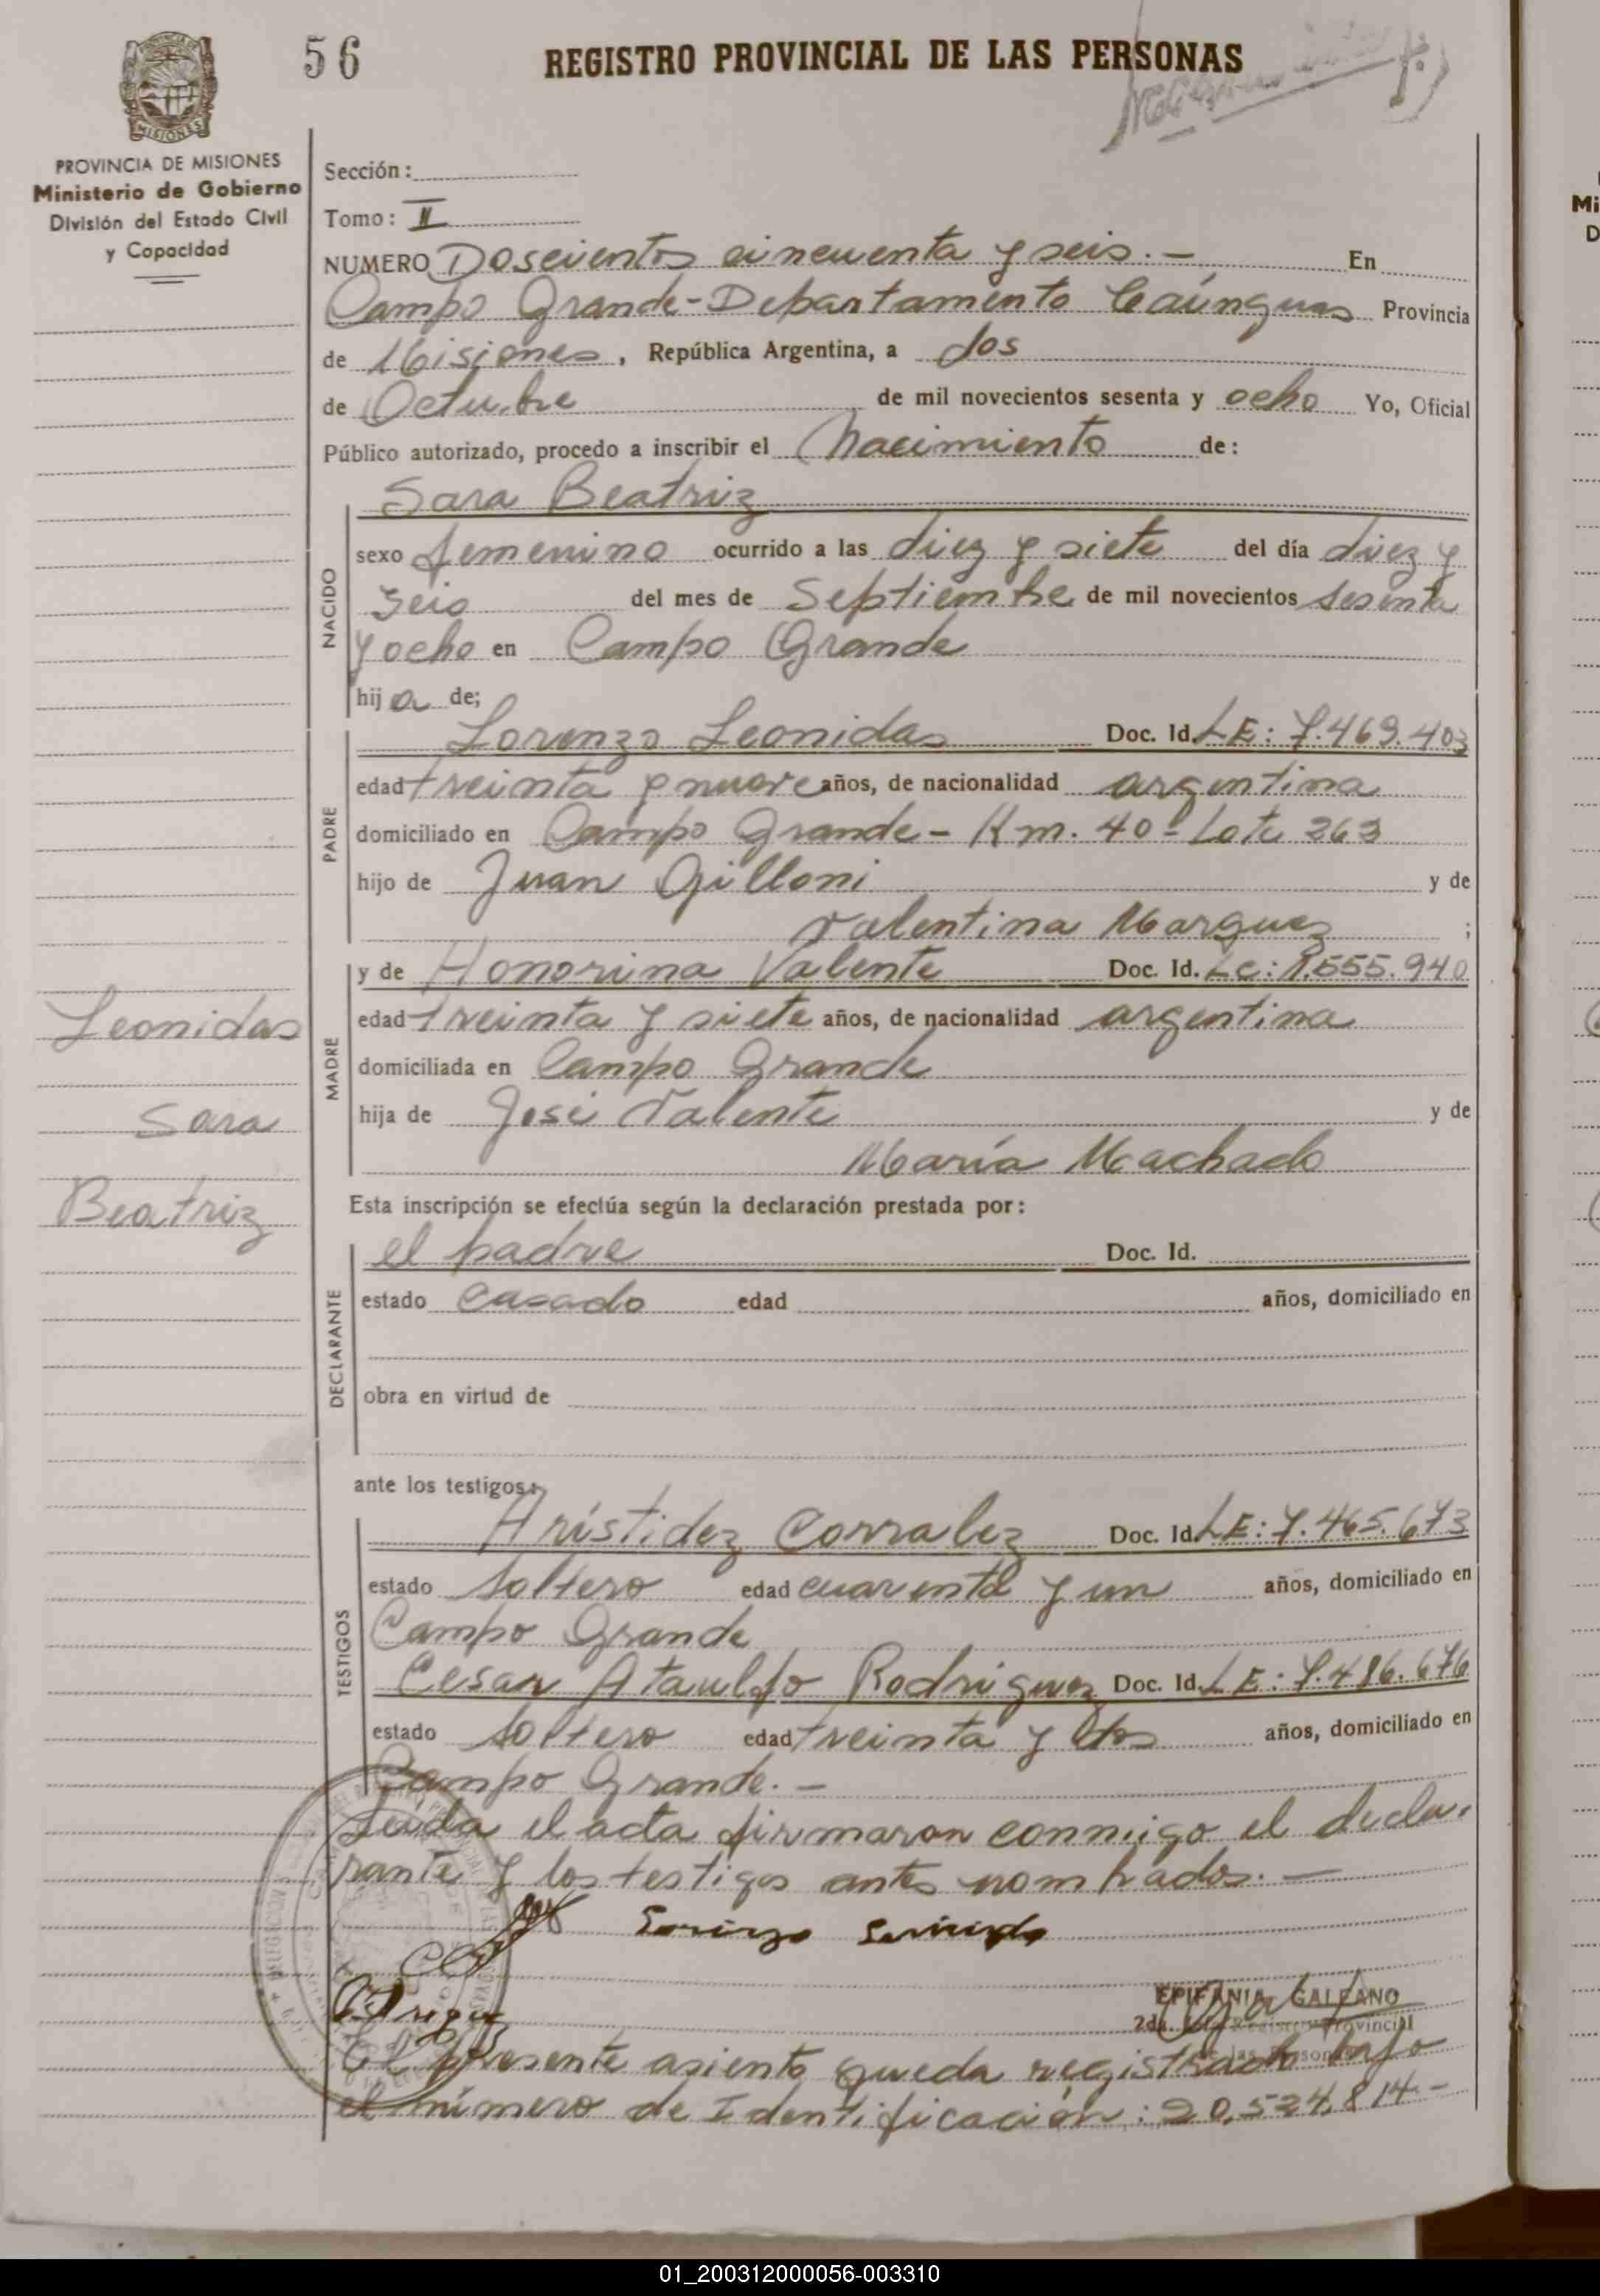 56
REGISTRO PROVINCIAL DE LAS PERSONAS
PROVINCIA DE MISIONES
Ministerio de Gobierno
División del Estado Civil
y Capacidad
Sección:
Tomo: II
NUMERO Doscientos cincuenta y seis.- En
Campo Grande-Departamento Caínguas Provincia
de Misiones, República Argentina, a dos
de Octubre de mil novecientos sesenta y ocho Yo, Oficial
Público autorizado, procedo a inscribir el Nacimiento de:
Sara Beatriz
NACIDO
sexo femenino ocurrido a las diez y siete del día diez y
seis del mes de Septiembre de mil novecientos sesenta
y ocho en Campo Grande
hija de;
PADRE
Lorenzo Leonidas Doc. Id. LE: 7.469.403
edad treinta y nueve años, de nacionalidad argentina
domiciliado en Campo Grande - Km. 40 - Lote 263
hijo de Juan Gilloni y de
Valentina Marquez ;
MADRE
y de Honorina Valente Doc. Id. LC: 1.555.940
edad treinta y siete años, de nacionalidad argentina
domiciliada en Campo Grande
hija de José Valente y de
María Machado
Leonidas
Sara
Beatriz
Esta inscripción se efectúa según la declaración prestada por:
DECLARANTE
el padre Doc. Id.
estado casado edad años, domiciliado en
obra en virtud de
ante los testigos:
TESTIGOS
Arístidez Corralez Doc. Id. LE: 7.465.673
estado soltero edad cuarenta y un años, domiciliado en
Campo Grande
Cesar Ataulfo Rodriguez Doc. Id. LE: 7.486.676
estado soltero edad treinta y dos años, domiciliado en
Campo Grande.-
Leída el acta firmaron conmigo el decla-
rante y los testigos antes nombrados.-
EPIFANIA GALEANO
2da. Registro Provincial
de las Personas
El presente asiento queda registrado bajo
el número de Identificación: 20.524.814.-
01_200312000056-003310